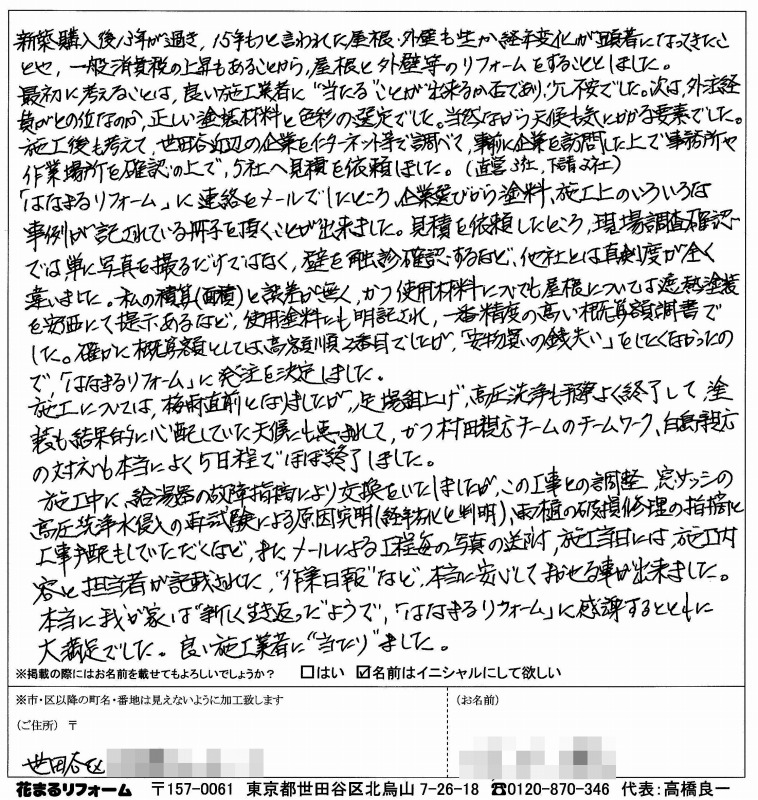 新築購入後13年が過ぎ、15年もつと言われた屋根・外壁も生か経年変化が顕著になってきたこ
とや、一般消費税の上昇もあることから、屋根と外壁等のリフォームをすることとしました。
最初に考えることは、良い施工業者に"当たる"ことが出来るか否であり、少し不安でした。次は、外装経
費がどの位なのか、正しい塗装材料と色彩の選定でした。当然ながら天候も気にかかる要素でした。
施工後も考えて、世田谷近辺の企業をインターネット等で調べて、事前に企業を訪問した上で事務所や
作業場所を確認の上で、5社へ見積を依頼しました。(直営3社、下請2社)
「はなまるリフォーム」に連絡をメールでしたところ、企業選びから塗料、施工上のいろいろな
事例が記されている冊子を頂くことが出来ました。見積を依頼したところ、現場調査確認
では単に写真を撮るだけではなく、壁を触診確認するなど、他社とは真剣度が全く
違いました。私の積算(面積)と誤差が無く、かつ使用材料についても屋根については遮熱塗装
を安価にて提示あるなど、使用塗料にも明記され、一番精度の高い概算額調書で
した。確かに概算額としては、高額順2番目でしたが、「安物買いの銭失い」をしたくなかったの
で、「はなまるリフォーム」に発注を決定しました。
施工については、梅雨直前となりましたが、足場組上げ、高圧洗浄も手際よく終了して、塗
装も結果的に心配していた天候にも恵まれて、かつ村田親方チームのチームワーク、白鳥親方
の対応も本当によく5日程でほぼ終了しました。
施工中に、給湯器の故障指摘により交換をいたしましたが、この工事との調整、窓サッシの
高圧洗浄水侵入の再試験による原因究明(経年劣化と判明)、雨樋の破損修理の指摘と
工事手配もしていただくなど、またメールによる工程毎の写真の送付、施工当日には、施工内
容と担当者が記載された、"作業日報"など、本当に安心しておまかせる事が出来ました。
本当に我が家は"新しく生き返った"ようで、「はなまるリフォーム」に感謝するとともに
大満足でした。良い施工業者に"当たり"ました。
※掲載の際にはお名前を載せてもよろしいでしょうか? □はい ☑名前はイニシャルにして欲しい
※市・区以降の町名・番地は見えないように加工致します
(お名前)
(ご住所) 〒
世田谷区
花まるリフォーム 〒157-0061 東京都世田谷区北烏山 7-26-18 ☎0120-870-346 代表:高橋良一